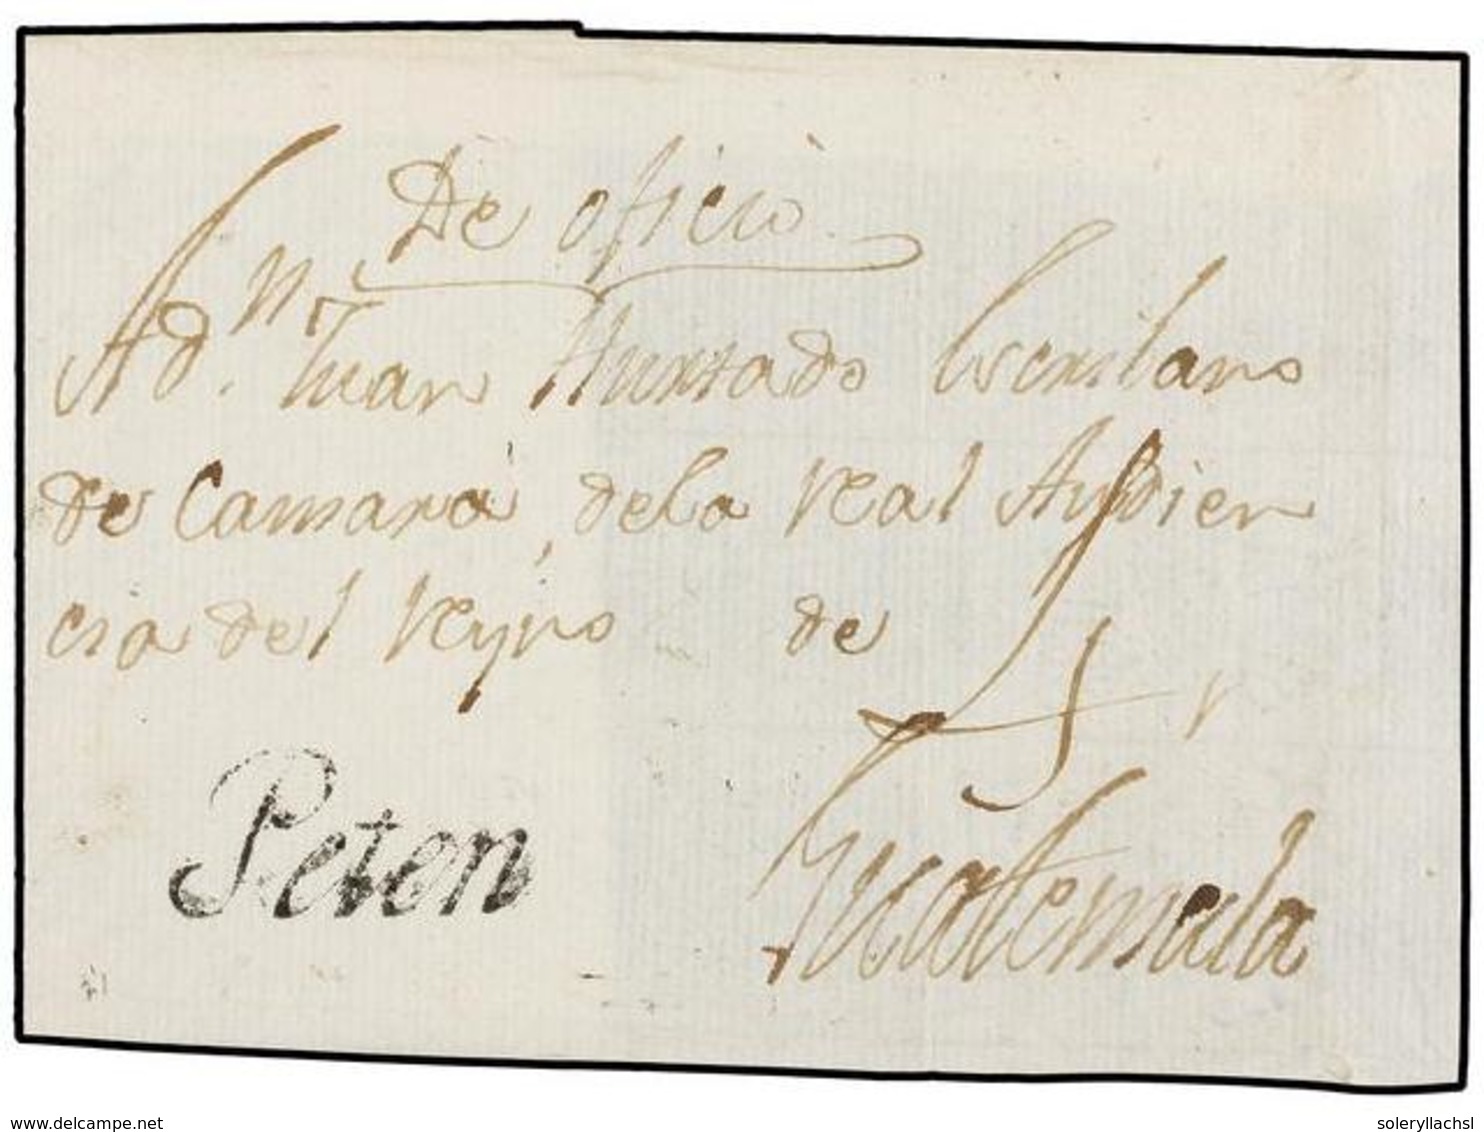 De oficio
A dn Juan Hurtado Escribano
de Camara, dela real Audien
cia del reyno de
Guatemala
Peten
www.delcampe.net
soleryllachsl